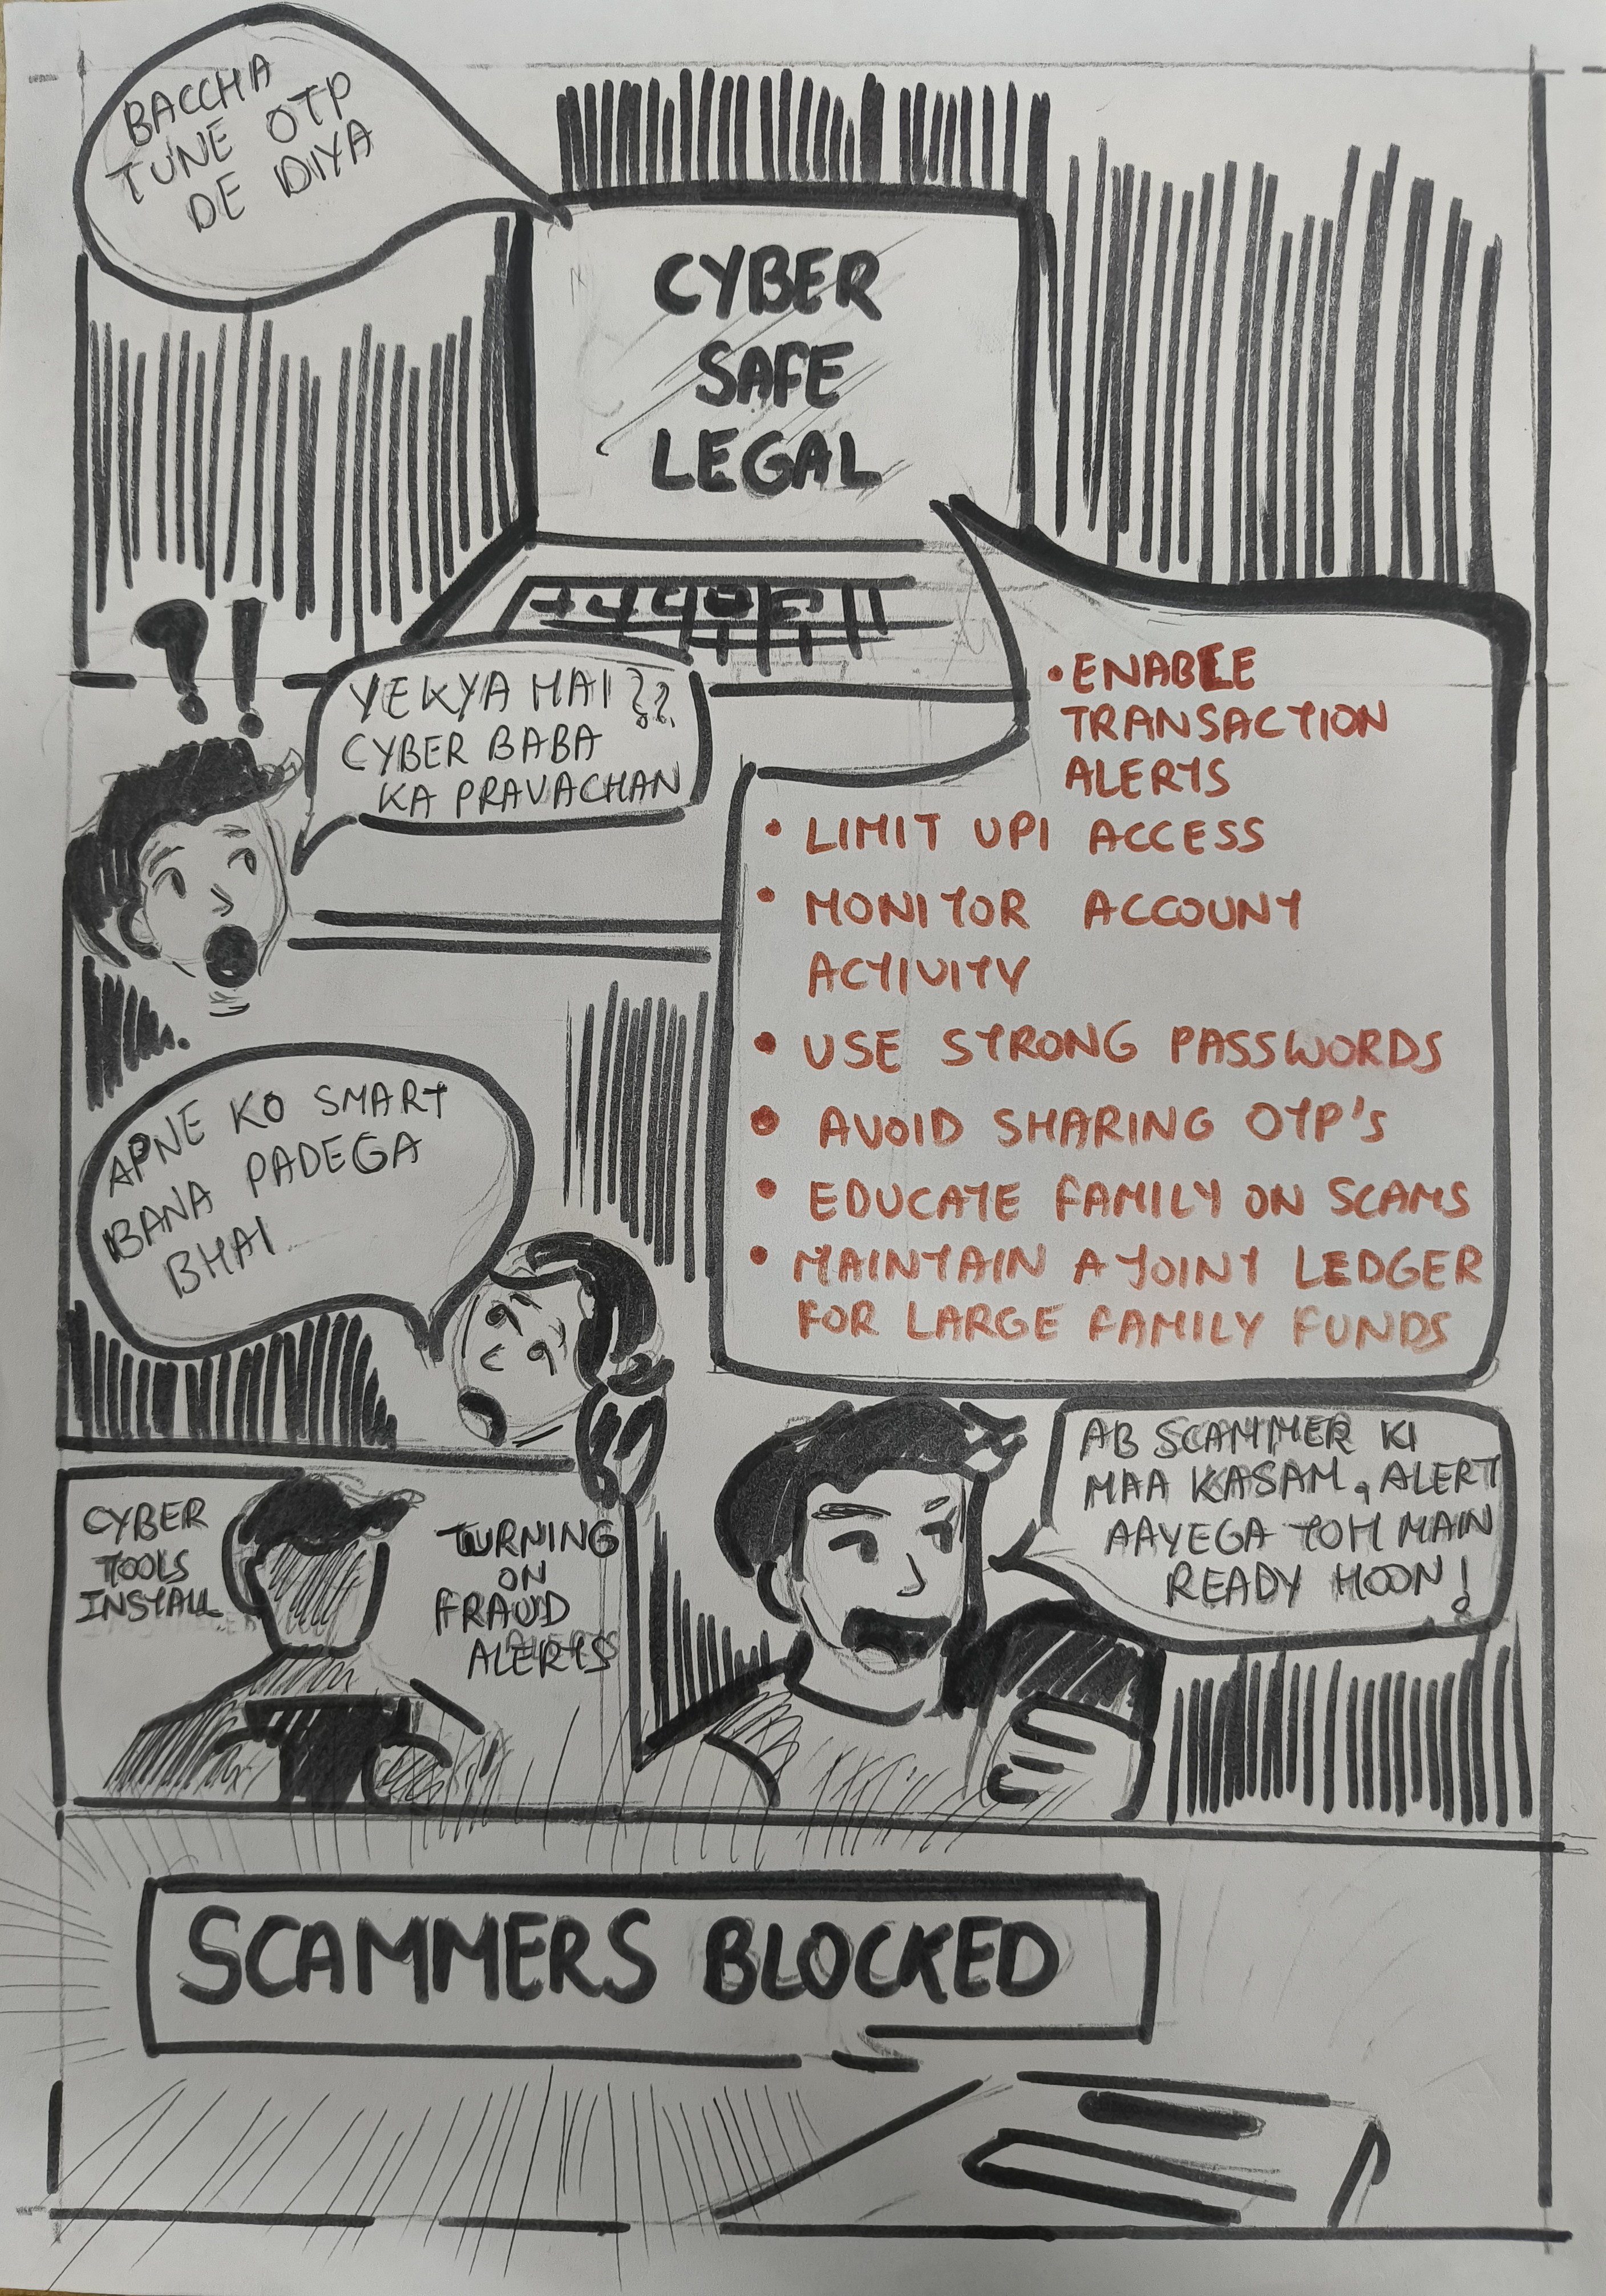 BACCHA
TUNE OTP
DE DIYA
CYBER
SAFE
LEGAL
?!
YE KYA HAI ??
CYBER BABA
KA PRAVACHAN
• ENABLE
TRANSACTION
ALERTS
• LIMIT UPI ACCESS
• MONITOR ACCOUNT
ACTIVITY
• USE STRONG PASSWORDS
• AVOID SHARING OTP'S
• EDUCATE FAMILY ON SCAMS
• MAINTAIN A JOINT LEDGER
FOR LARGE FAMILY FUNDS
APNE KO SMART
BANA PADEGA
BHAI
CYBER
TOOLS
INSTALL
TURNING
ON
FRAUD
ALERTS
AB SCAMMER KI
MAA KASAM, ALERT
AAYEGA TOH MAIN
READY HOON!
SCAMMERS BLOCKED